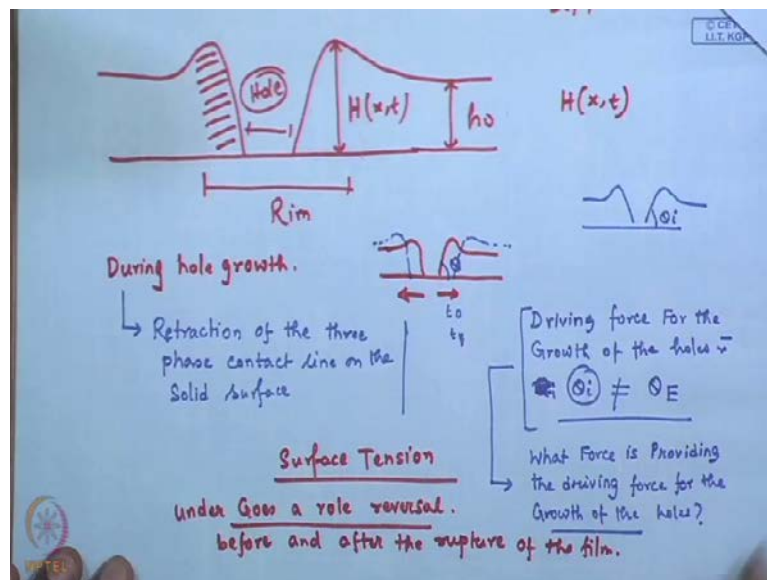 © CET
I.I.T. KGP
Hole
H(x,t)
ho
H(x,t)
Rim
θi
During hole growth.
θ
to
Retraction of the three
phase contact line on the
Solid surface
Driving force For the
Growth of the holes :-
θi ≠ θE
What Force is Providing
the driving force for the
Growth of the holes?
Surface Tension
under Goes a role reversal.
before and after the rupture of the film.
NPTEL